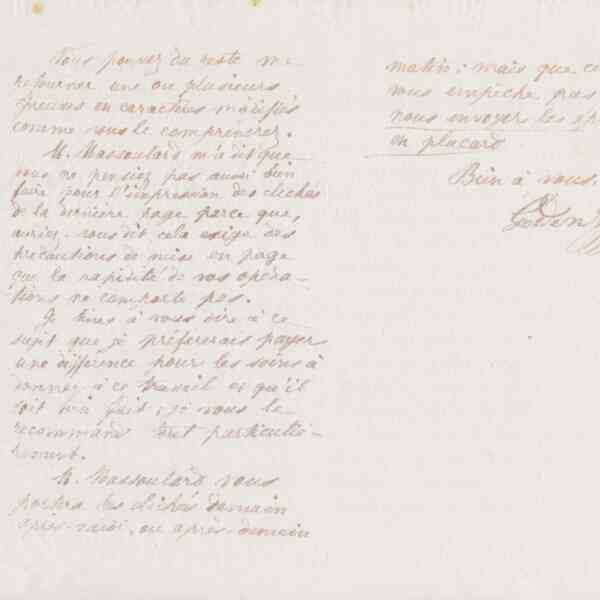 Vous pouvez du reste me
retourner une ou plusieurs
épreuves en caractères modifiés
comme vous le comprendrez.
M. Massoulard m'a dit que
vous ne pensiez pas aussi bien
faire pour l'impression des clichés
de la dernière page parce que,
auriez-vous dit cela exige des
précautions de mise en page
que la rapidité de vos opéra-
tions ne comporte pas.
Je tiens à vous dire à ce
sujet que je préfèrerais payer
une différence pour les soins à
donner à ce travail et qu'il
soit bien fait; je vous le
recommande tout particuliè-
rement.
M. Massoulard vous
portera les clichés demain
après-midi, ou après-demain
matin; mais que ce
vous empêche pas
nous envoyer les
en placard
Bien à vous.
Godin